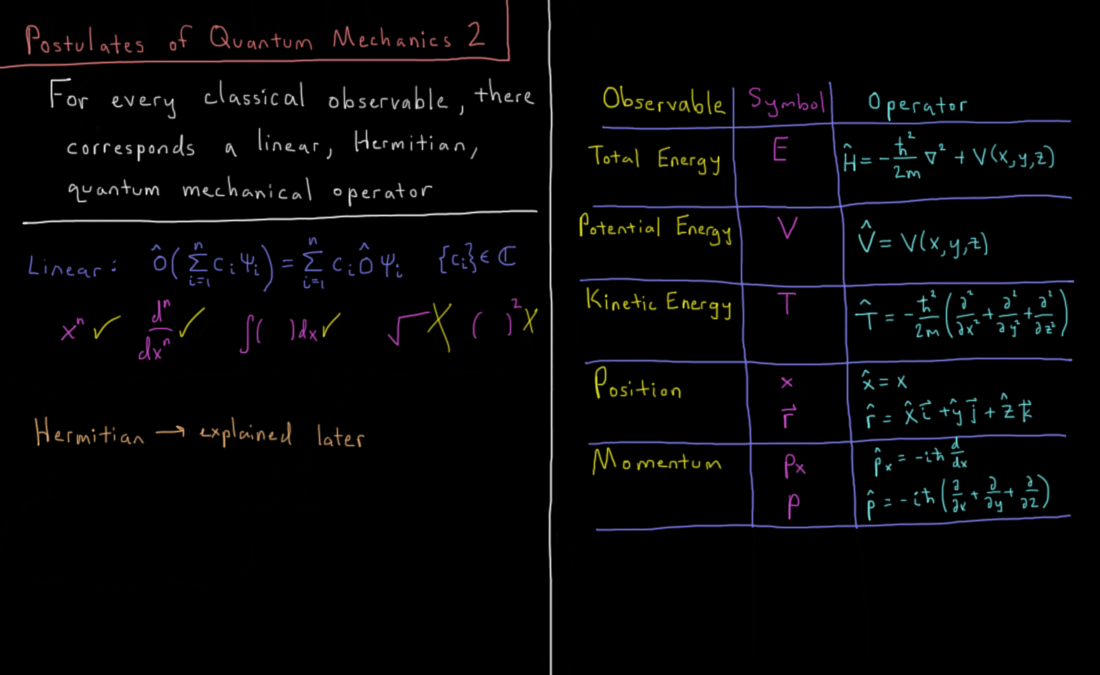 Postulates of Quantum Mechanics 2
For every classical observable, there
corresponds a linear, Hermitian,
quantum mechanical operator
Linear: ô(∑ᵢ₌₁ⁿ cᵢ Ψᵢ) = ∑ᵢ₌₁ⁿ cᵢ ô Ψᵢ {cᵢ} ∈ ℂ
xⁿ ✓ dⁿ/dxⁿ ✓ ∫( )dx ✓ √ X ( )² X
Hermitian → explained later
Observable Symbol Operator
Total Energy E Ĥ = -ħ²/2m ∇² + V(x,y,z)
Potential Energy V V̂ = V(x,y,z)
Kinetic Energy T T̂ = -ħ²/2m (∂²/∂x² + ∂²/∂y² + ∂²/∂z²)
Position x x̂ = x
r⃗ r̂ = x̂ i⃗ + ŷ j⃗ + ẑ k⃗
Momentum pₓ p̂ₓ = -iħ d/dx
p p̂ = -iħ (∂/∂x + ∂/∂y + ∂/∂z)